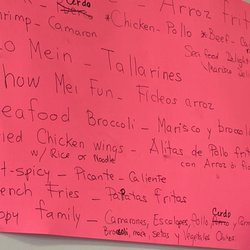 Arroz Frit
Cerdo
hrimp - Camaron *Chicken - Pollo *Beef - Ca
Sea food Delight
o Mein - Tallarines
how Mei Fun - Fideos arroz
eafood Broccoli - Marisco y brocc
ied Chicken wings - Alitas de Pollo frit
w/ Rice or Noodle con Arroz o fi
t-spicy - Picante - Caliente
ench Fries - Papatas fritas
Cerdo
ppy family - Camarones, Escalopes, Pollo
Broccoli, maiz, setas y Vegetales China